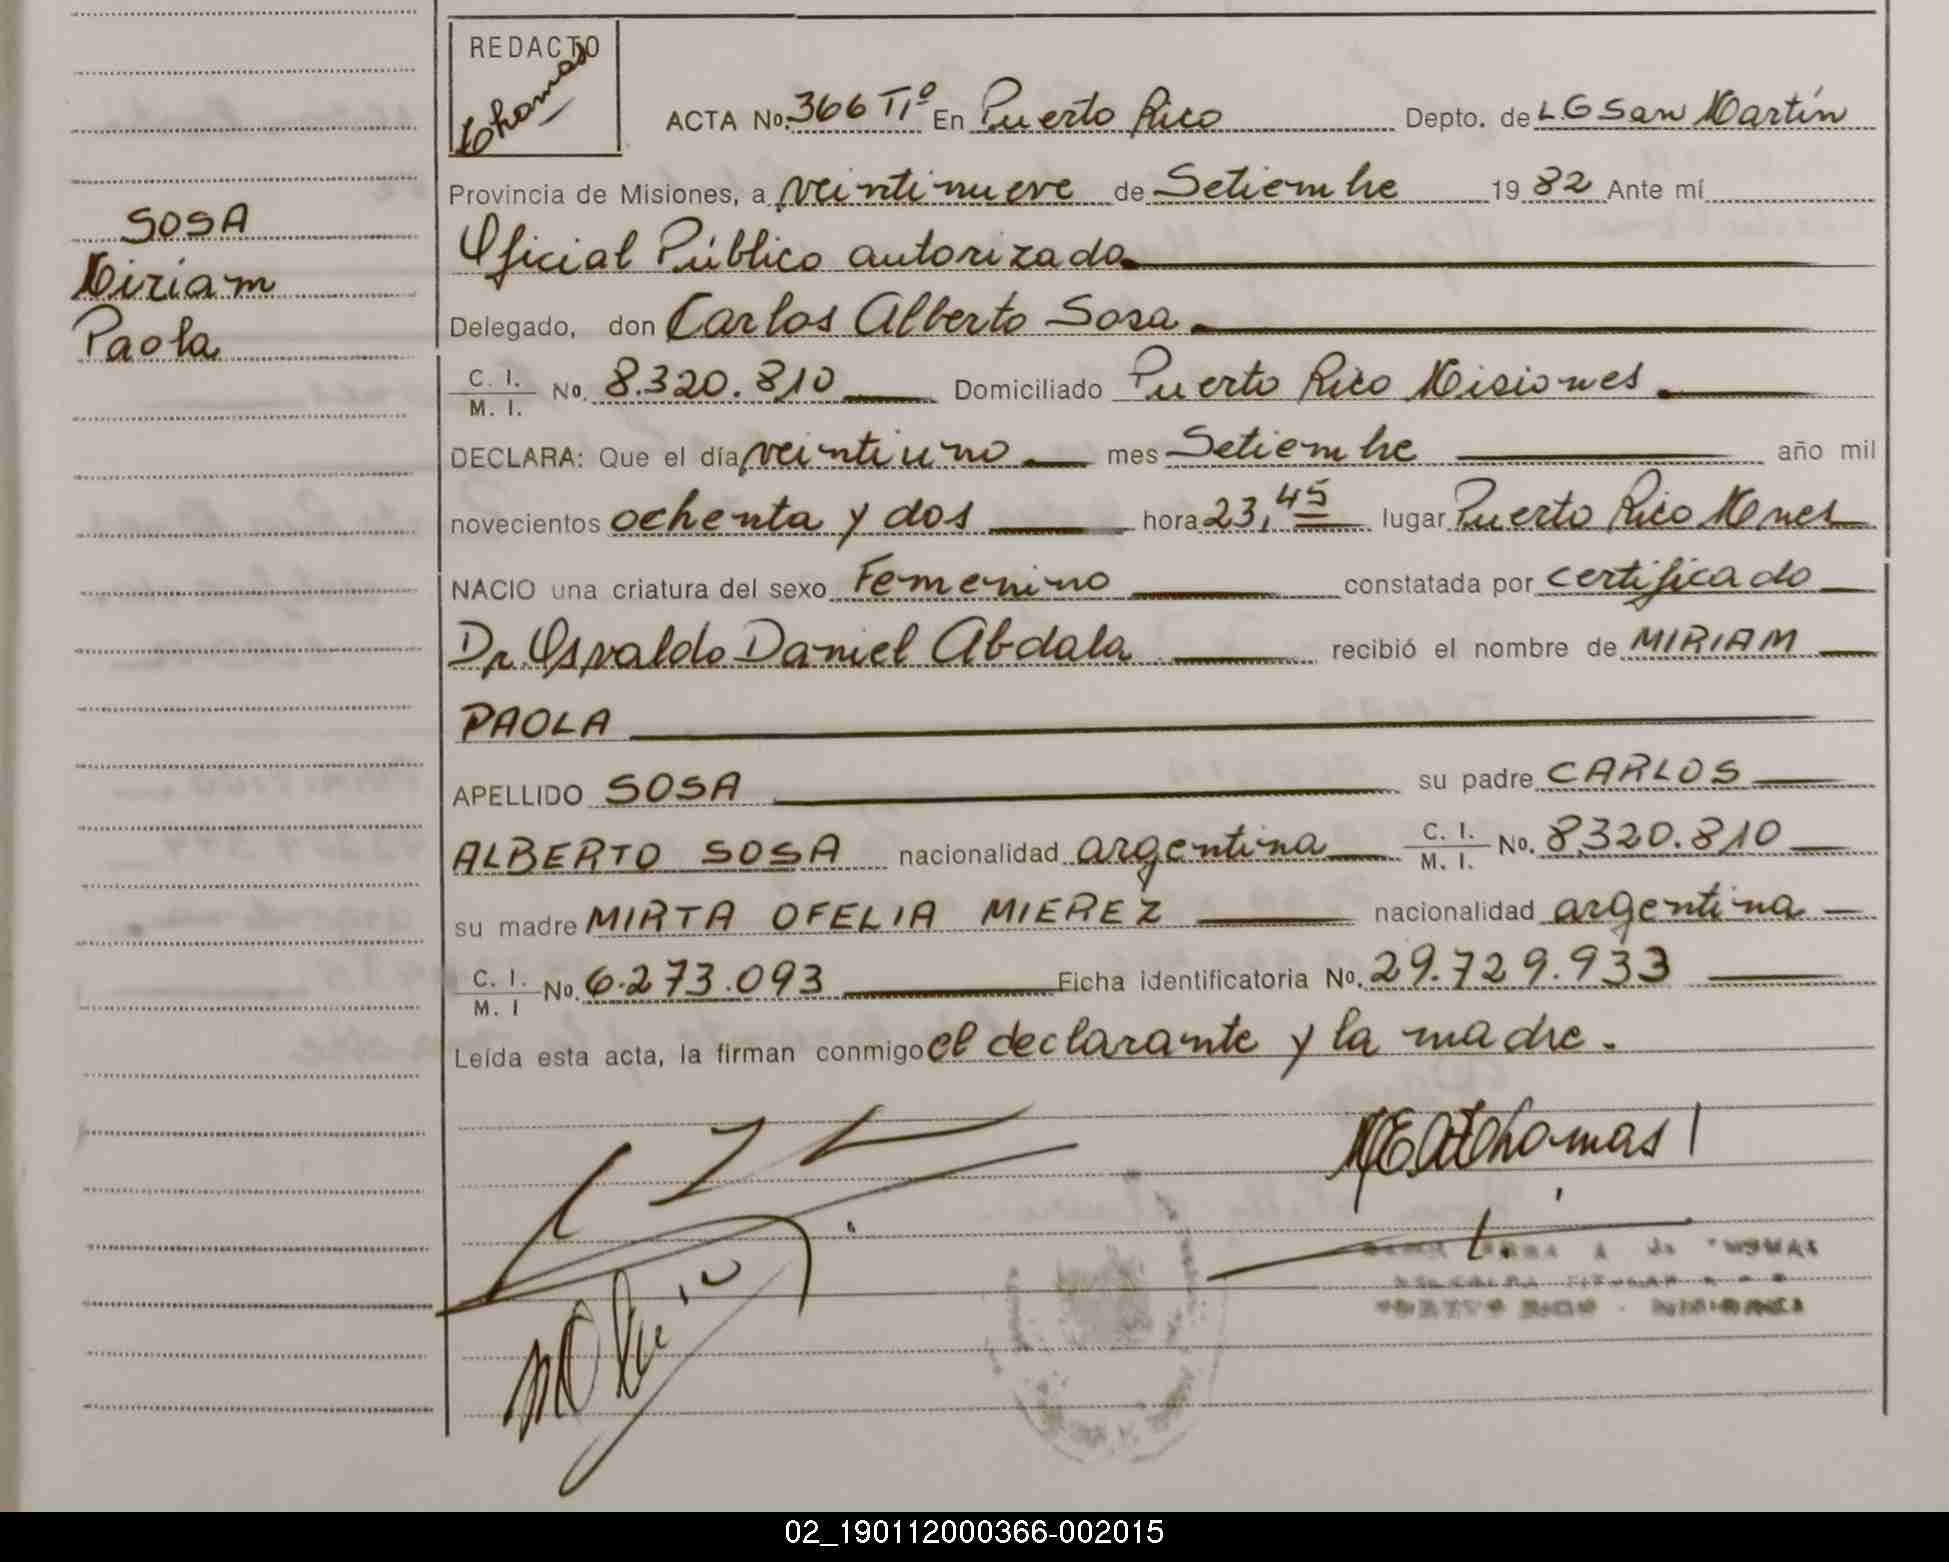 REDACTO
Tohomas
ACTA No. 366 TIº En Puerto Rico Depto. de LG San Martín
Provincia de Misiones, a veintinueve de Setiembre 1982 Ante mí
SOSA
Miriam
Paola
Oficial Público autorizado
Delegado, don Carlos Alberto Sosa
C. I. / M. I. No. 8.320.810 Domiciliado Puerto Rico Misiones
DECLARA: Que el día veintiuno mes Setiembre año mil
novecientos ochenta y dos hora 23,45 lugar Puerto Rico Mnes
NACIO una criatura del sexo Femenino constatada por certificado
Dr. Osvaldo Daniel Abdala recibió el nombre de MIRIAM
PAOLA
APELLIDO SOSA su padre CARLOS
ALBERTO SOSA nacionalidad argentina C. I. / M. I. No. 8320.810
su madre MIRTA OFELIA MIEREZ nacionalidad argentina
C. I. / M. I No. 6.273.093 Ficha identificatoria No. 29.729.933
Leída esta acta, la firman conmigo el declarante y la madre.
02_190112000366-002015